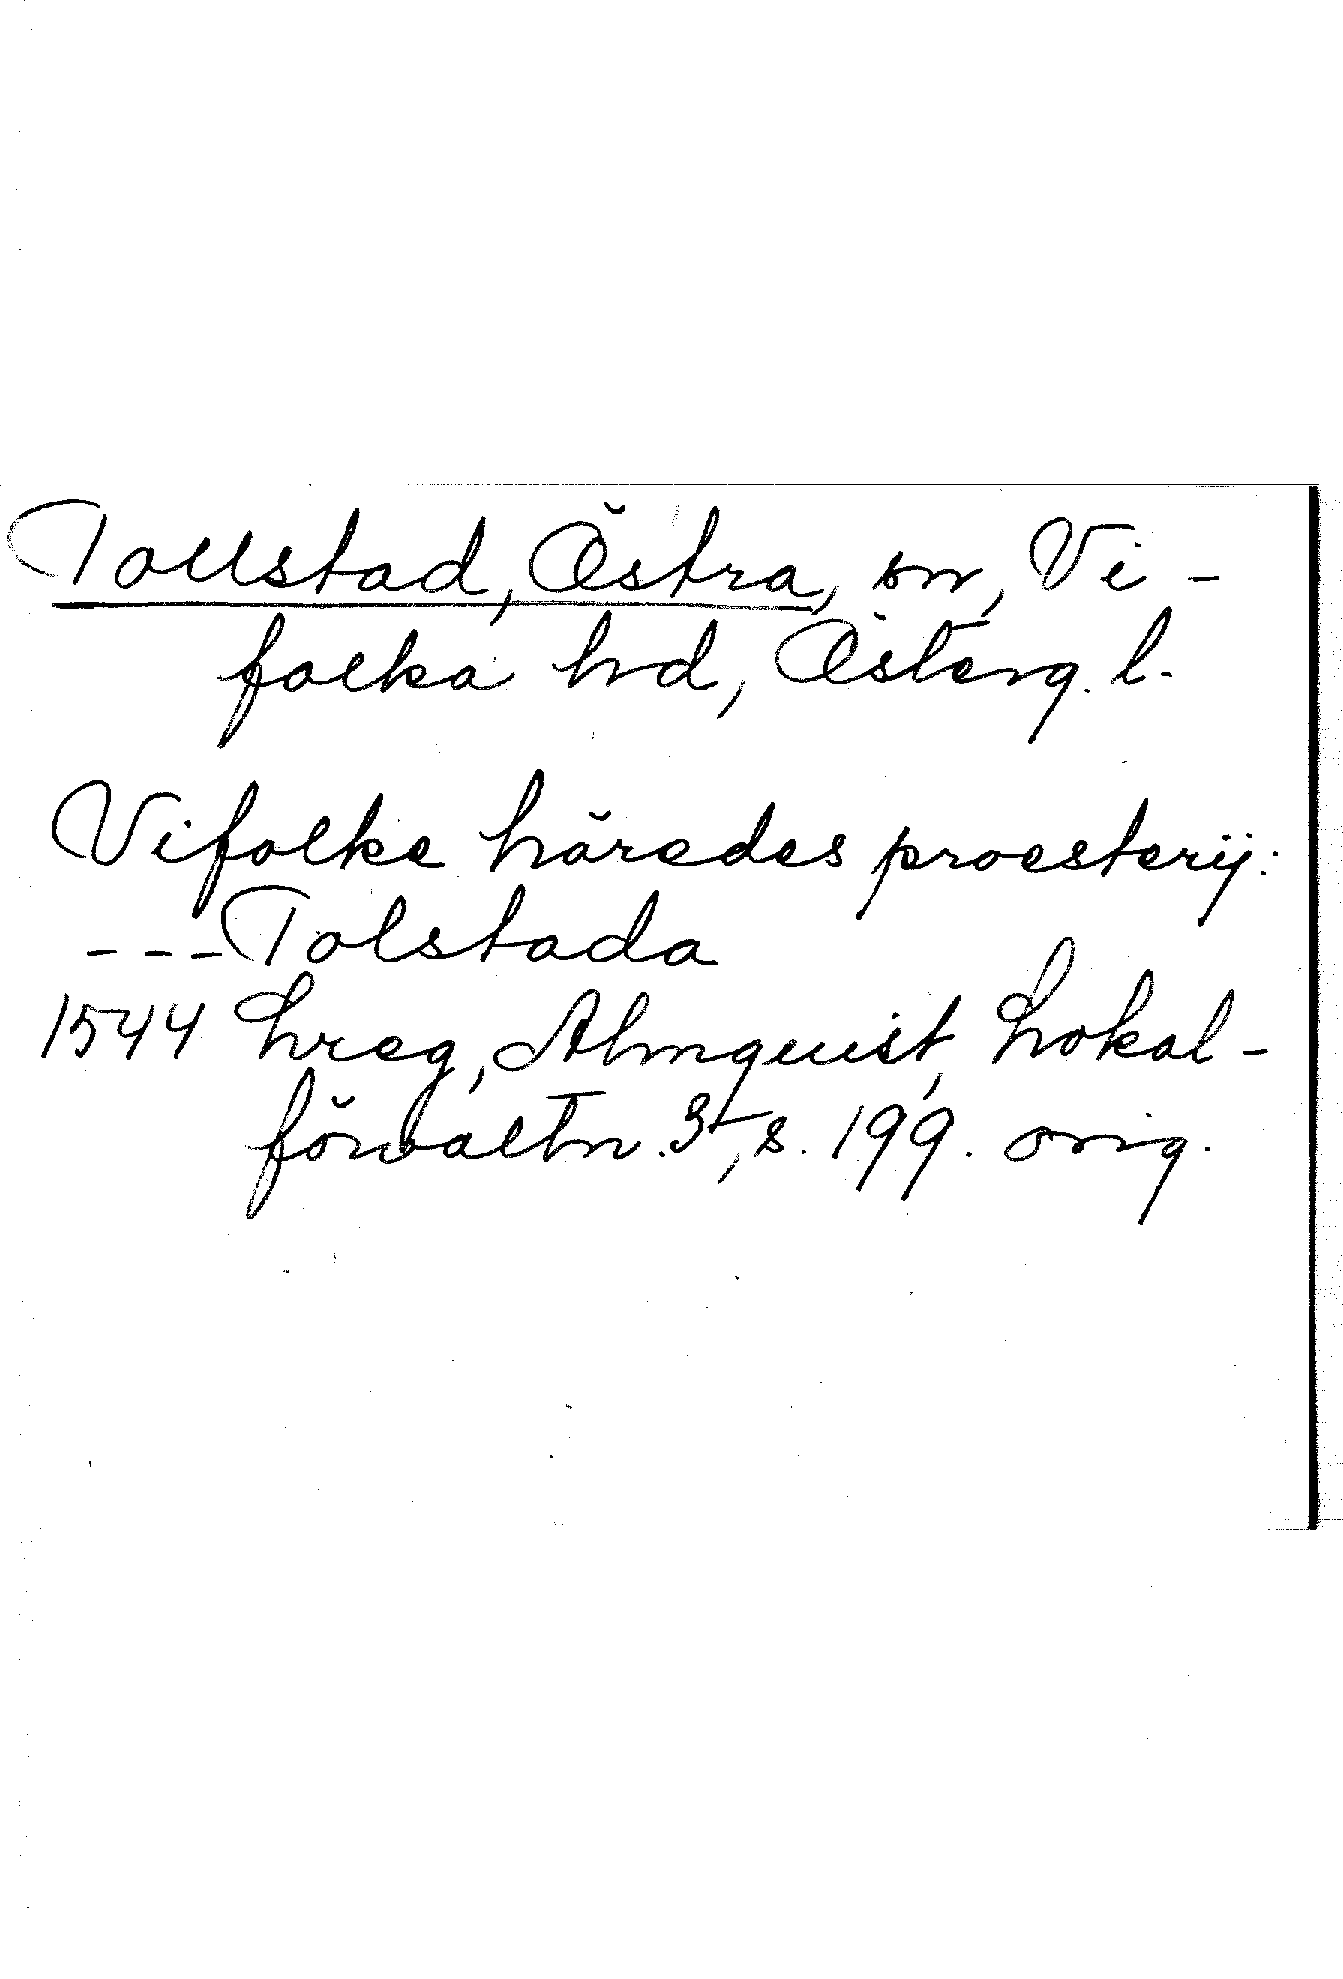 Tollstad, Östra, sn, Vi-
folka hd, Österg. l.
Vifolke häredes proesterij:
---Tolstada
1544 Lreg, Almquist, Lokal-
förvaltn. 3, s. 199. orig.